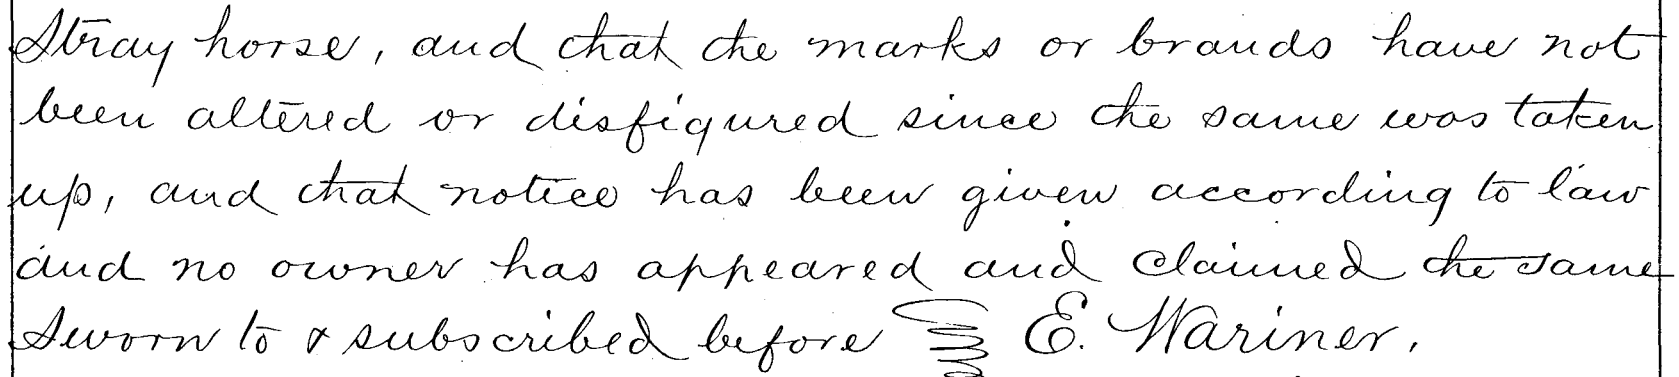 Stray horse, and that the marks or brands have not
been altered or disfigured since the same was taken
up, and that notice has been given according to law
and no owner has appeared and claimed the same
Sworn to & subscribed before E. Wariner.